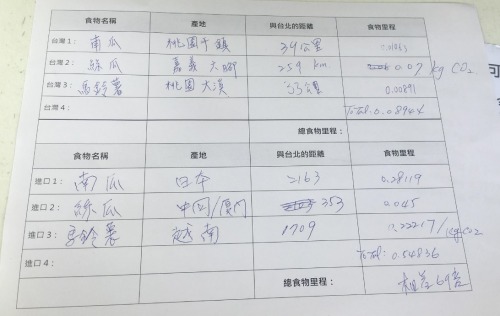 食物名稱 產地 與台北的距離 食物里程
台灣1： 南瓜 桃園平鎮 39公里
台灣2： 絲瓜 嘉義 259 km 0.07 kg CO2
台灣3： 馬鈴薯 桃園大溪 33公里 0.00891
台灣4： Total: 0.08944
總食物里程：
食物名稱 產地 與台北的距離 食物里程
進口1： 南瓜 日本 2163 0.28119
進口2： 絲瓜 中国/廈門 353 0.045
進口3： 馬鈴薯 越南 1709 0.22217/kgCO2
進口4： Total: 0.54836
總食物里程： 相差6倍
可